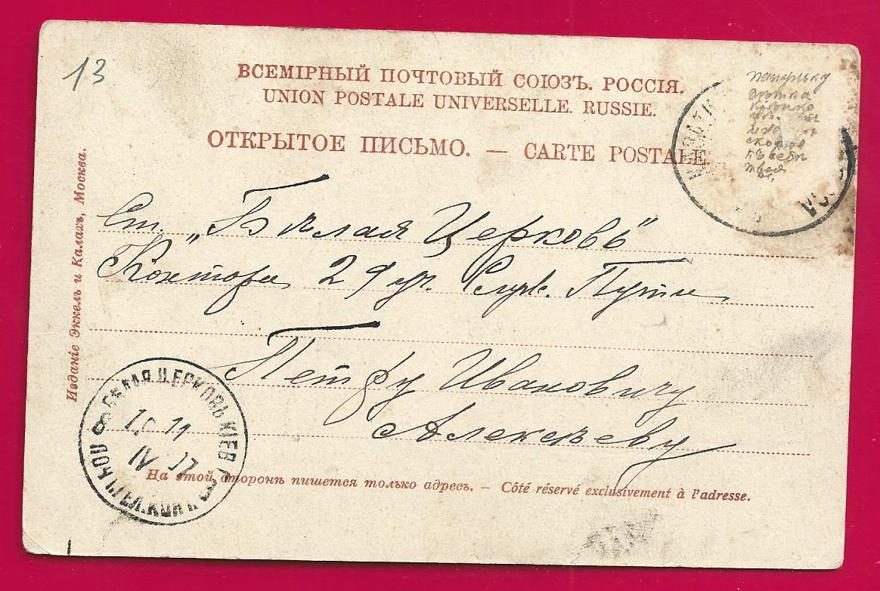 13
ВСЕМІРНЫЙ ПОЧТОВЫЙ СОЮЗЪ. РОССІЯ.
UNION POSTALE UNIVERSELLE. RUSSIE.
ОТКРЫТОЕ ПИСЬМО. — CARTE POSTALE.
Ст. „Бѣлая Церковь"
Контора 29 уч. Служ. Пути
Петру Ивановичу
Алексѣеву
На этой сторонѣ пишется только адресъ. — Côté réservé exclusivement à l'adresse.
Изданіе Эккель и Калахъ, Москва.
БѢЛАЯ ЦЕРКОВЬ КІЕВ